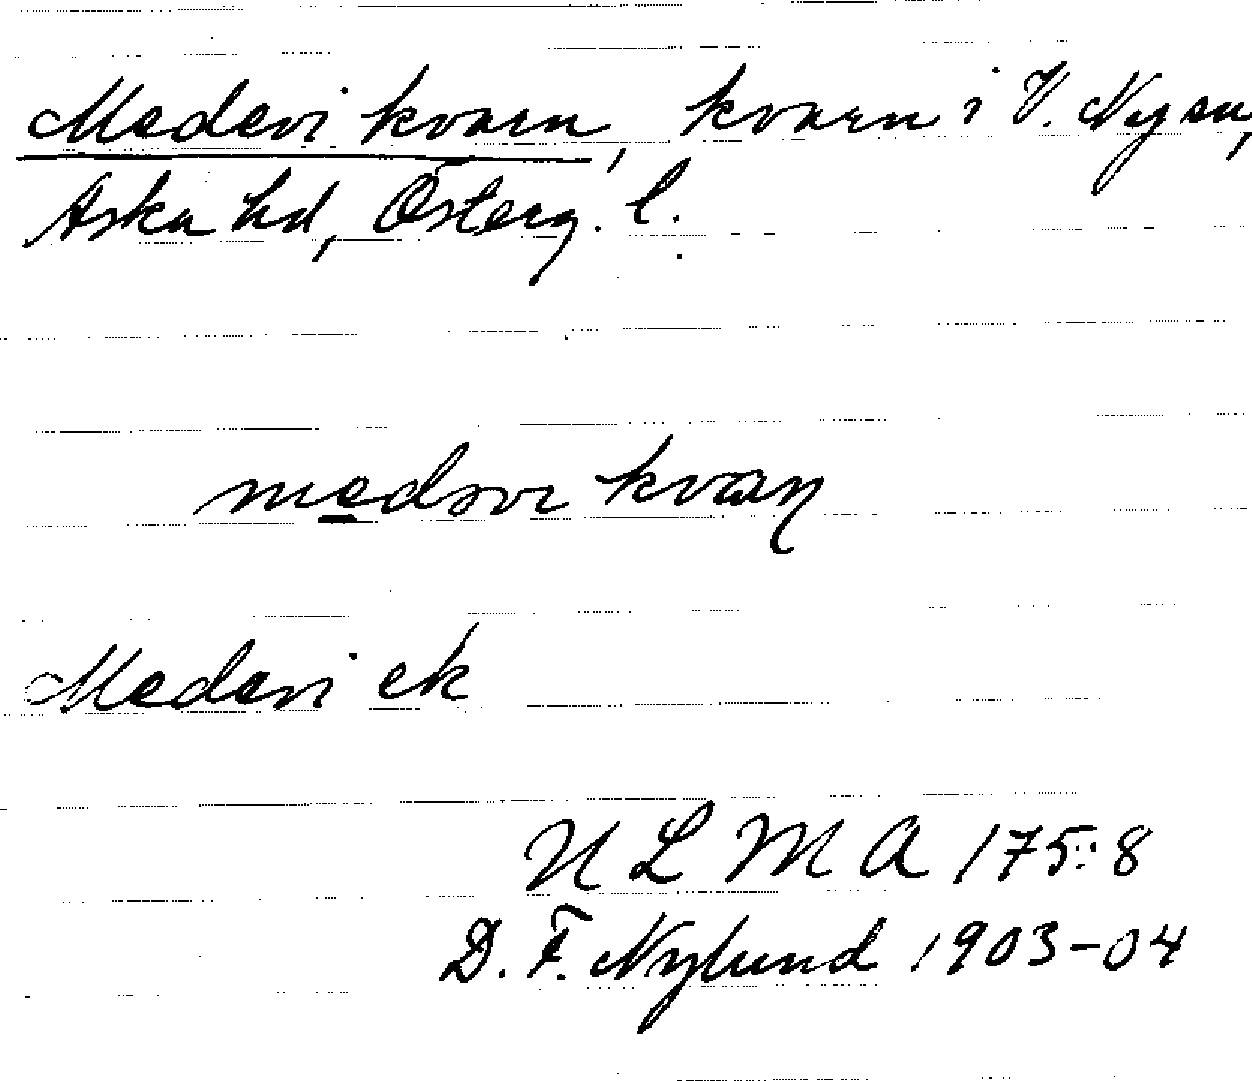 Medevi kvarn, kvarn i V. Ny sn,
Aska hd, Österg. l.
medəvi kvaɳ
Medevi ek
N L M A 175:8
D. F. Nylund 1903-04